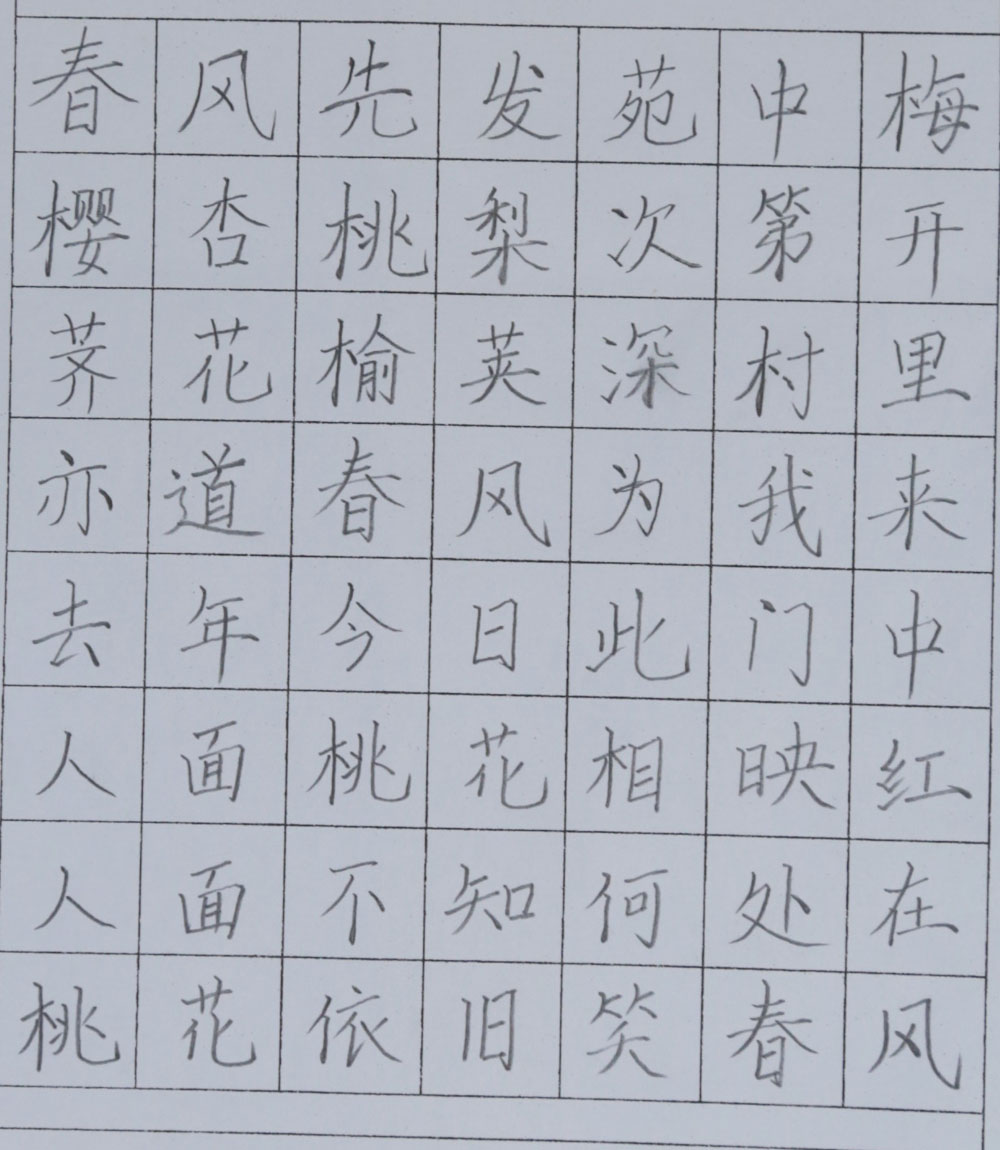 春风先发苑中梅
樱杏桃梨次第开
荠花榆荚深村里
亦道春风为我来
去年今日此门中
人面桃花相映红
人面不知何处在
桃花依旧笑春风